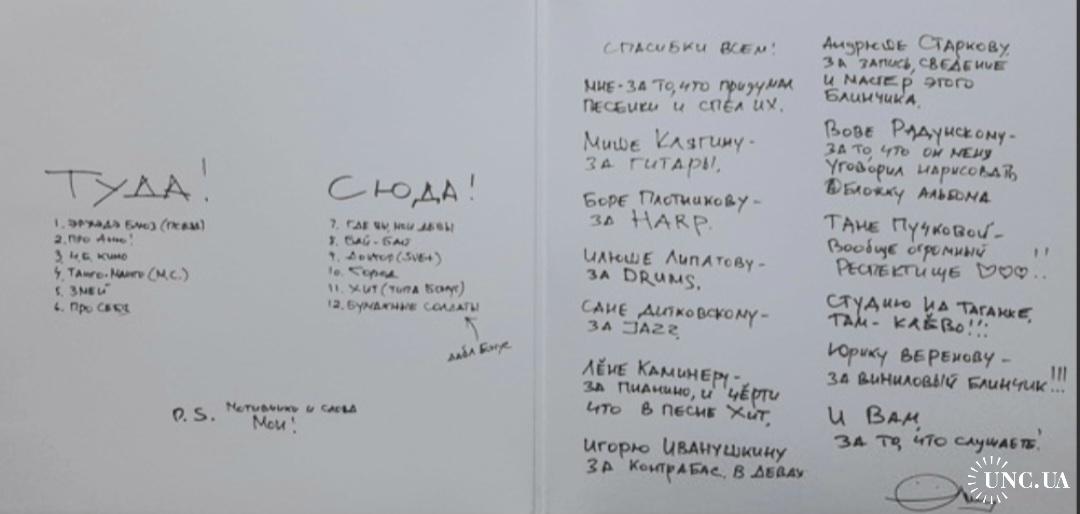 ТУДА!
1. БЛЮЗ
2. ПРО АННУ!
3. Ч.Б. КИНО
4. ТАНГО-МАНГО (М.С.)
5. ЗМЕЙ
6. ПРО СЕБЯ
СЮДА!
7. ГДЕ ВЫ, МОИ ДЕВЫ
8. БАЙ-БАЙ
9. ДОКТОР (SVET)
10. ГОРОД
11. ХИТ (ТИПА БОНУС)
12. БУМАЖНЫЕ СОЛДАТЫ
ДАБЛ БОНУС
P.S. МОТИВЧИКИ И СЛОВА
МОИ!
СПАСИБКИ ВСЕМ!
МНЕ - ЗА ТО, ЧТО ПРИДУМАЛ
ПЕСЕНКИ И СПЕЛ ИХ.
МИШЕ КЛЯГИНУ -
ЗА ГИТАРЫ.
БОРЕ ПЛОТНИКОВУ -
ЗА HARP.
ИЛЮШЕ ЛИПАТОВУ -
ЗА DRUMS.
САНЕ ДИТКОВСКОМУ -
ЗА JAZZ
ЛЁНЕ КАМИНЕРУ -
ЗА ПИАНИНО, И ЧЁРТИ
ЧТО В ПЕСНЕ ХИТ.
ИГОРЮ ИВАНУШКИНУ
ЗА КОНТРАБАС, В ДЕВАХ
АНДРЮШЕ СТАРКОВУ
ЗА ЗАПИСЬ, СВЕДЕНИЕ
И МАСТЕР ЭТОГО
БЛИНЧИКА.
ВОВЕ РАДУНСКОМУ -
ЗА ТО, ЧТО ОН МЕНЯ
УГОВОРИЛ НАРИСОВАТЬ
ОБЛОЖКУ АЛЬБОМА
ТАНЕ ПУЧКОВОЙ -
ВООБЩЕ ОГРОМНЫЙ
РЕСПЕКТИЩЕ ♡♡♡!!
СТУДИЮ НА ТАГАНКЕ,
ТАМ - КЛЁВО!!!
ЮРИКУ ВЕРЕНОВУ -
ЗА ВИНИЛОВЫЙ БЛИНЧИК!!!
И ВАМ,
ЗА ТО, ЧТО СЛУШАЕТЕ!
UNC.UA